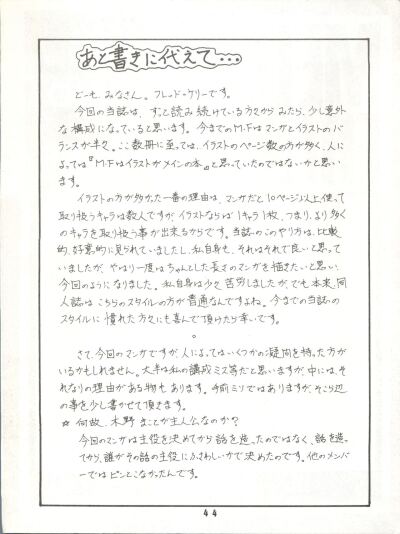 あと書きに代えて・・・
どーも、みなさん。フレッド・ケリーです。
今回の当誌は、ずっと読み続けている方々からみたら、少し意外
な構成になっていると思います。今までのM・Fはマンガとイラストのバ
ランスが半々。ここ数冊に至っては、イラストのページ数の方が多く、人に
よっては『M・Fはイラストがメインの本』と思っていたのではないかと思い
ます。
イラストの方が多かった一番の理由は、マンガだと10ページ以上使って
取り扱うキャラは数人ですが、イラストならば1キャラ1枚、つまり、より多く
のキャラを取り扱う事が出来るからです。当誌はこのやり方は、比較
的、好意的に見られていましたし、私自身も、それはそれで良いと思って
いましたが、やはり一度はちゃんとした長さのマンガを描きたいと思い、
今回のようになりました。私自身は少々苦労しましたが、でも本来、同
人誌はこちらのスタイルの方が普通なんですよね。今までの当誌の
スタイルに慣れた方々にも喜んで頂けたら幸いです。
さて、今回のマンガですが、人によってはいくつかの疑問を持った方が
いるかもしれません。大半は私の構成ミスなどだと思いますが、中には、そ
れなりの理由がある物もあります。今前ミソではありますが、そこら辺
の事を少し書かせて頂きます。
☆ 何故、木野まことが主人公なのか?
今回のマンガは主役を決めてから話を造ったのではなく、話を造っ
てから、誰がその話の主役にふさわしいかで決めたのです。他のメンバ
ーではピンとこなかったんです。
44